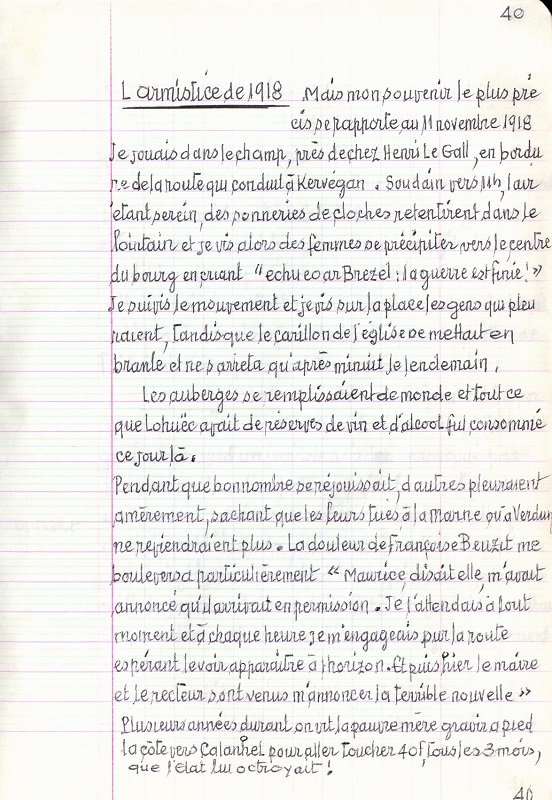 40
L armistice de 1918 Mais mon souvenir le plus pré
cis se rapporte au 11 novembre 1918
Je jouais dans le champ, près de chez Henri Le Gall, en bordu
re de la route qui conduit à Kervégan. Soudain vers 11h, l'air
étant serein, des sonneries de cloches retentirent dans le
lointain et je vis alors des femmes se précipiter vers le centre
du bourg en criant "echu eo ar Brezel : la guerre est finie !"
Je suivis le mouvement et je vis sur la place les gens qui pleu
raient, tandis que le carillon de l'église se mettait en
branle et ne s'arreta qu'après minuit le lendemain.
Les auberges se remplissaient de monde et tout ce
que Lohuëc avait de réserves de vin et d'alcool fut consommé
ce jour là.
Pendant que bon nombre se réjouissait, d'autres pleuraient
amèrement, sachant que les leurs tués à la Marne ou à Verdun
ne reviendraient plus. La douleur de Françoise Beuzit me
bouleversa particulièrement "Maurice, disait elle, m'avait
annoncé qu'il arrivait en permission. Je l'attendais à tout
moment et à chaque heure je m'engageais sur la route
espérant le voir apparaître à l'horizon. Et puis hier le maire
et le recteur sont venus m'annoncer la terrible nouvelle"
Plusieurs années durant on vit la pauvre mère gravir à pied
la côte vers Calanhel pour aller toucher 40f, tous les 3 mois,
que l'état lui octroyait !
40